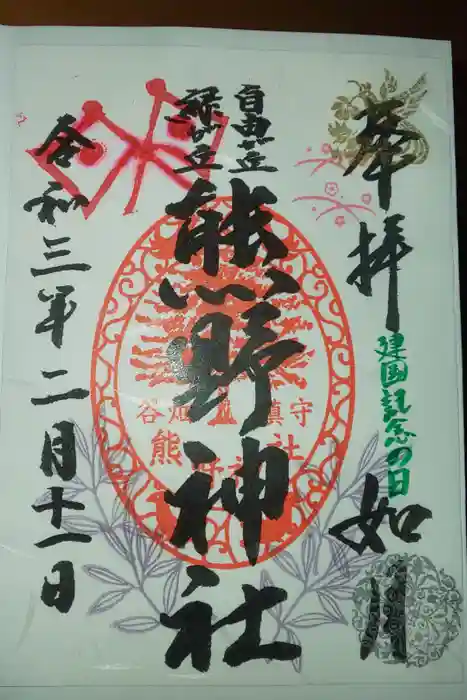 奉拝
建国記念の日
如月
自由が丘
緑が丘
熊野神社
谷畑 鎮守
熊野神社
令和三年二月十一日